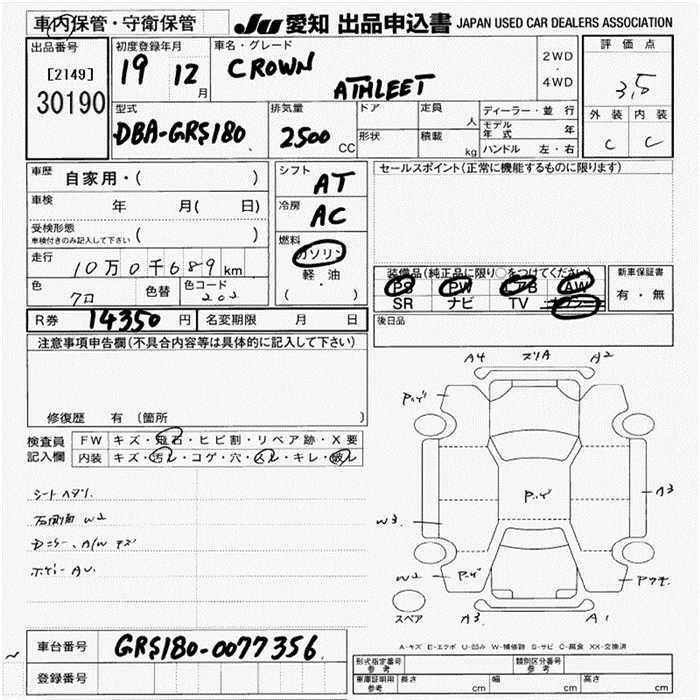 車内保管・守衛保管
JU 愛知 出品申込書 JAPAN USED CAR DEALERS ASSOCIATION
出品番号
[2149]
30190
初度登録年月
19 12月
車名・グレード
CROWN
ATHLEET
2WD
・
4WD
評価点
3.5
外装 内装
C C
型式
DBA-GRS180
排気量
2500 CC
ドア
定員
人
形状
積載
kg
ディーラー・並行
モデル年式 年
ハンドル 左・右
車歴 自家用・( )
車検 年 月( 日)
受検形態
車検付きのみ記入して下さい ( )
走行 10万0千689km
色 クロ 色替 色コード 202
シフト
AT
冷房
AC
燃料
ガソリン
軽・油
( )
セールスポイント(正常に機能するものに限ります)
装備品(純正品に限り○をつけてください)
PS PW エアB AW
SR ナビ TV
新車保証書
有・無
後日品
R券 14350円 名変期限 月 日
注意事項申告欄(不具合内容等は具体的に記入して下さい)
修復歴 有 (箇所 )
検査員
記入欄
FW キズ・飛石・ヒビ割・リペア跡・X要
内装 キズ・汚れ・コゲ・穴・スレ・キレ・破れ
シートヘタリ
右側面 W2
A/W キズ
ボデー AU
A4 スリA A2
A3
W3
W2
A3 A1
スペア
A-キズ E-エクボ U-凹み W-補修跡 S-サビ C-腐食 XX-交換済
車台番号 GRS180-0077356
登録番号
形式指定番号
参考
類別区分番号
参考
車庫証明用
参考
長さ cm 幅 cm 高さ cm